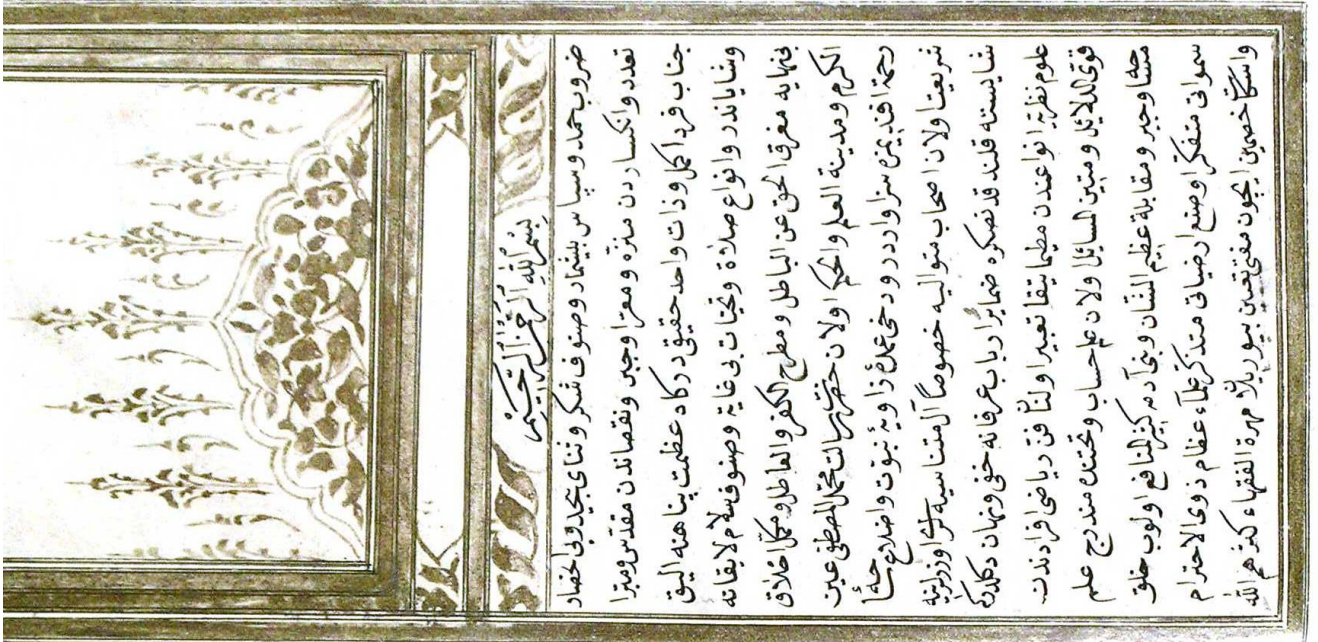 بسم الله الرحمن الرحيم
ضروب حمد و سپاس بيشمار وصنوف شكر و ثناى بيحد و بى احصار
تعدد و انكسار دن منزه و معرا و جبر و نقصاندن مقدس و مبرا
جناب فرد اكمل و ذات واحد حقيقى دركاه عظمت پناهنه اليق
و شاياندر و انواع صلاة و تحيات بى غايه و صنوف سلام لا يقانه
بى نهايه مفرق الحق عن الباطل و مطرح الكفر والعاطل و مكمل اخلاق
الكرم و مدينة العلم والحكم اولان حضرت محمد المصطفى عين
رحمة قديمنه سزاوار در و دخى اضلاع زاويۀ نبوت و
شريعتنا ولان اصحاب متواليه خصوصاً آل متناسبه لر اوزرلرينه
شايسته قلند قد نصكره ضماير ارباب عرفانه خفى و نهان دكلدركه
علوم نظريه انواعندن مطيما يتقا تعبير اولنان فن رياضى افرادندن
قوى الدلائل و متين المسائل اولان علم حساب و تحتنده مندرج علم
مساحه و جبر و مقابلة عظيم الشان و بنى آدمه كثير المنافع اولوب خلق
سمواتى متفكر و صنع ارضياتى متذكر علماء عظام ذوى الاحترام
واسكات خصمين ايچون مفتى تعيين بيوريلان مهرة الفقهاء كثرهم الله